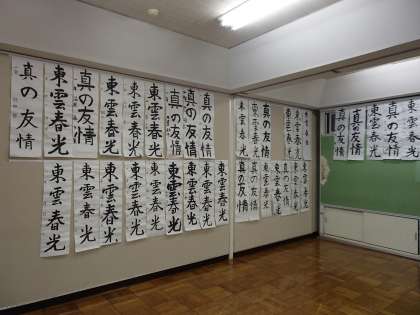 真の友情
東雲春光
真の友情
東雲春光
東雲春光
東雲春光
真の友情
真の友情
真の友情
東雲春光
東雲春光
東雲春光
東雲春光
東雲春光
東雲春光
東雲春光
東雲春光
東雲春光
真の友情
真の友情
東雲春光
東雲春光
真の友情
真の友情
東雲春光
東雲春光
真の友情
東雲春光
真の友情
真の友情
真の友情
東雲春光